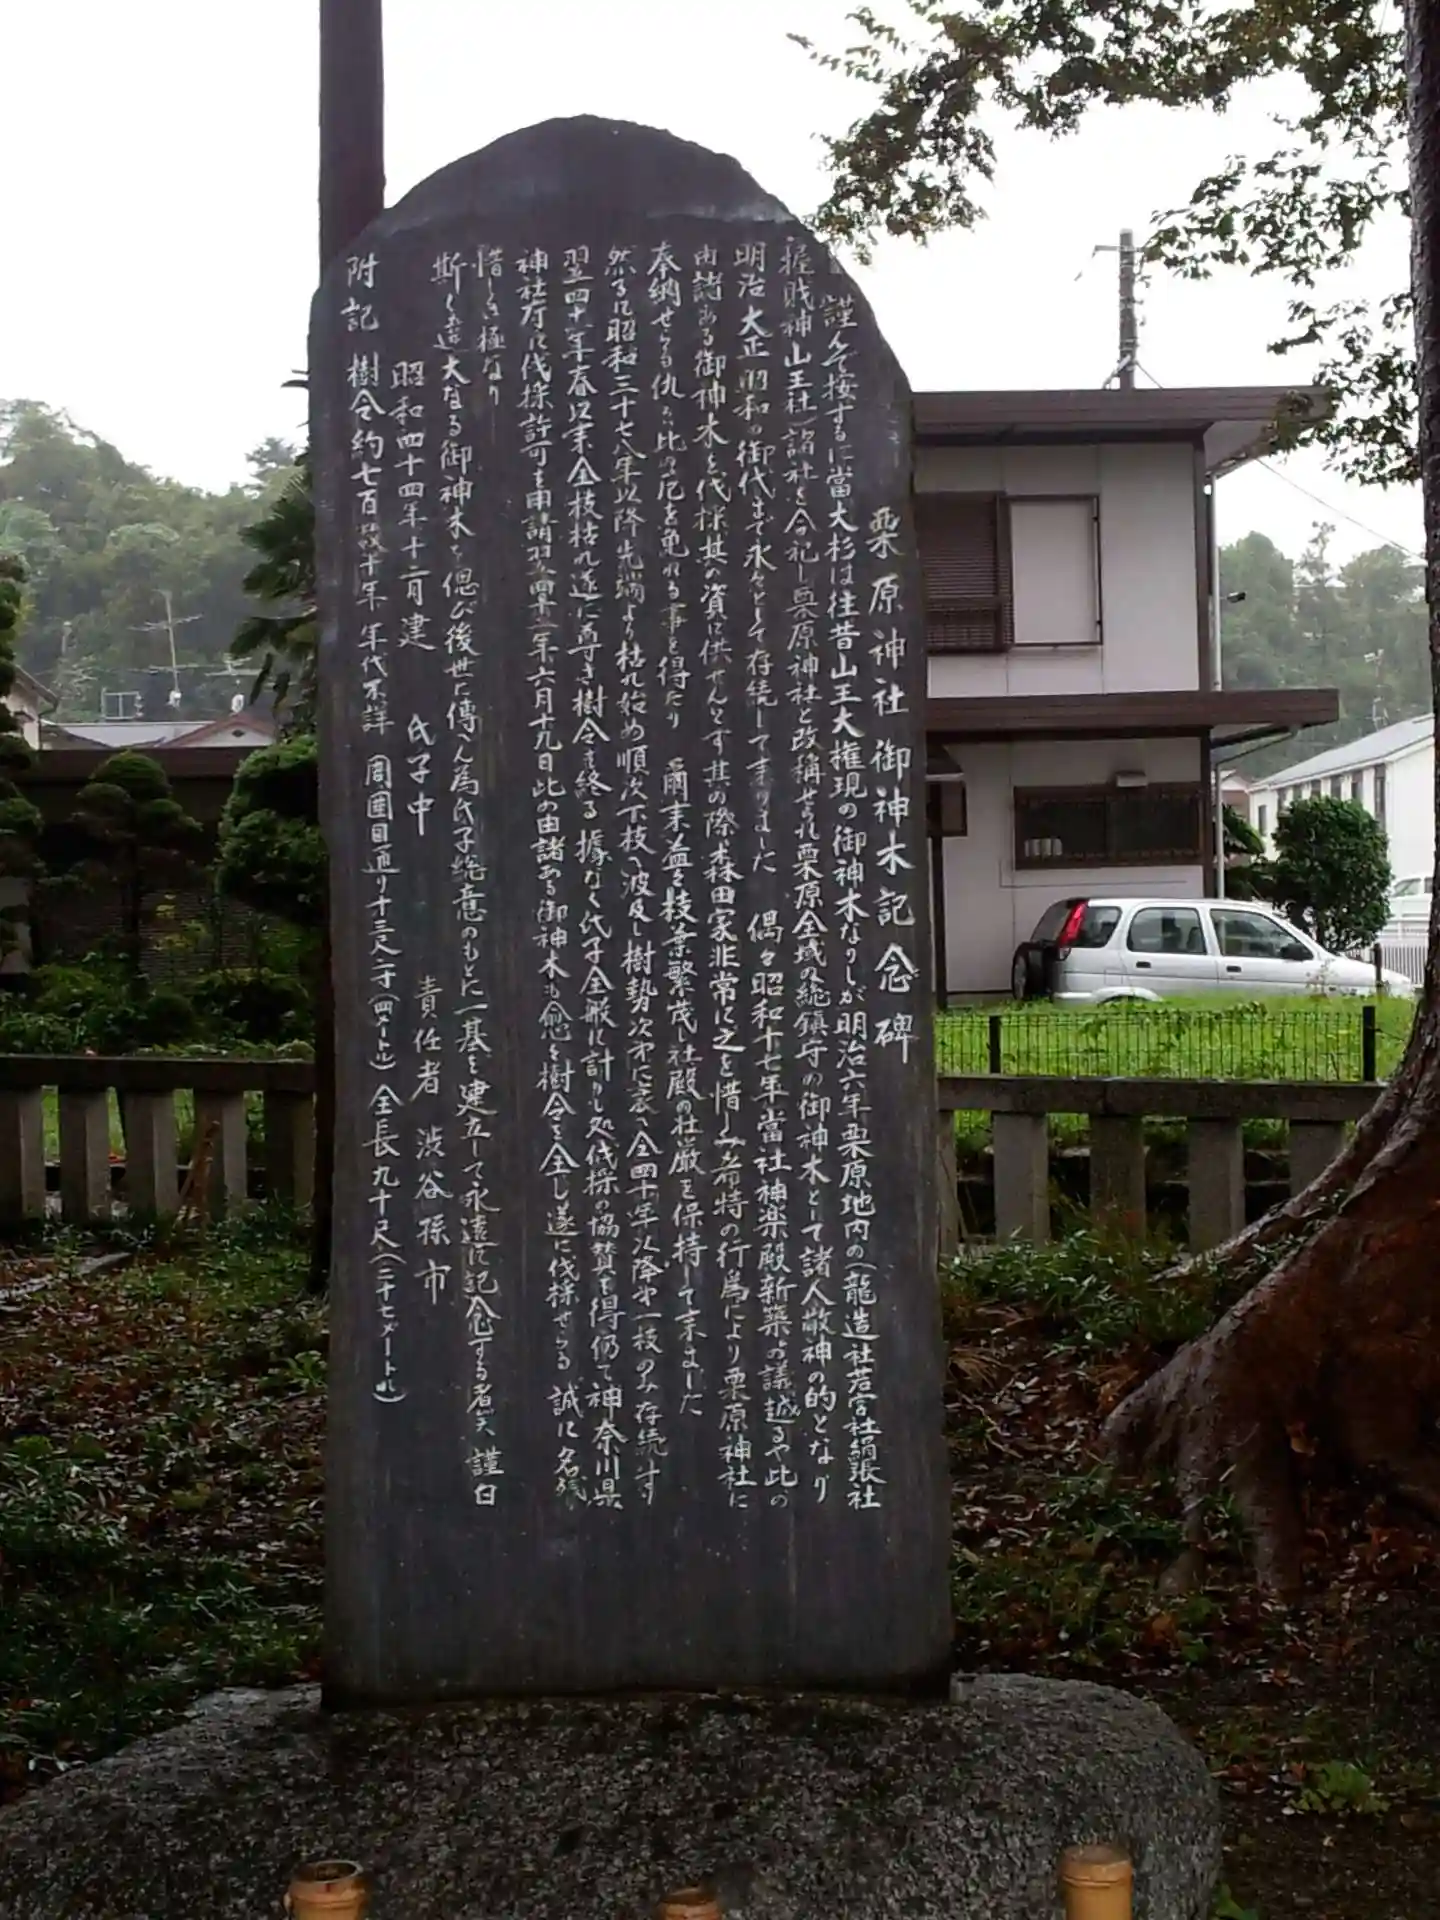 栗原神社 御神木記念碑
謹んで按ずるに當大杉は往昔山王大権現の御神木なりしが明治六年栗原地内の(龍造社若宮社絹張社
山王社)諸社を合祀し栗原神社と改稱せられ栗原全域の総鎮守の御神木として諸人敬神の的となり
明治大正昭和の御代まで永々として存続して来りました 偶々昭和十七年當社神楽殿新築の議起るや此の
由諸ある御神木を伐採其の資に供せんとす其の際森田家非常に之を惜しみ希特の行為により栗原神社に
奉納せらる仍て此の厄を免れる事を得たり 爾来益々枝葉繁茂し社殿の壮厳を保持して来ました
然るに昭和三十七八年以降先端より枯れ始め順次下枝へ波及し樹勢次第に衰へ全四十年以降第一枝のみ存続す
翌四十一年春以来全枝枯れ遂に尊き樹令を終る 據なく氏子全般に計りし処伐採の協賛を得仍て神奈川県
神社庁に伐採許可を申請翌四十二年六月十九日此の由諸ある御神木も愈々樹令を全し遂に伐採せらる 誠に名残
惜しき極なり
斯く遠大なる御神木を偲び後世に傳へん為氏子総意のもとに一基を建立して永遠に記念する者也 謹白
昭和四十四年十二月建 氏子中 責任者 渋谷孫市
附記 樹令約七百数十年 年代不詳 周囲目通り十三尺二寸(四メートル) 全長九十尺(二十七メートル)